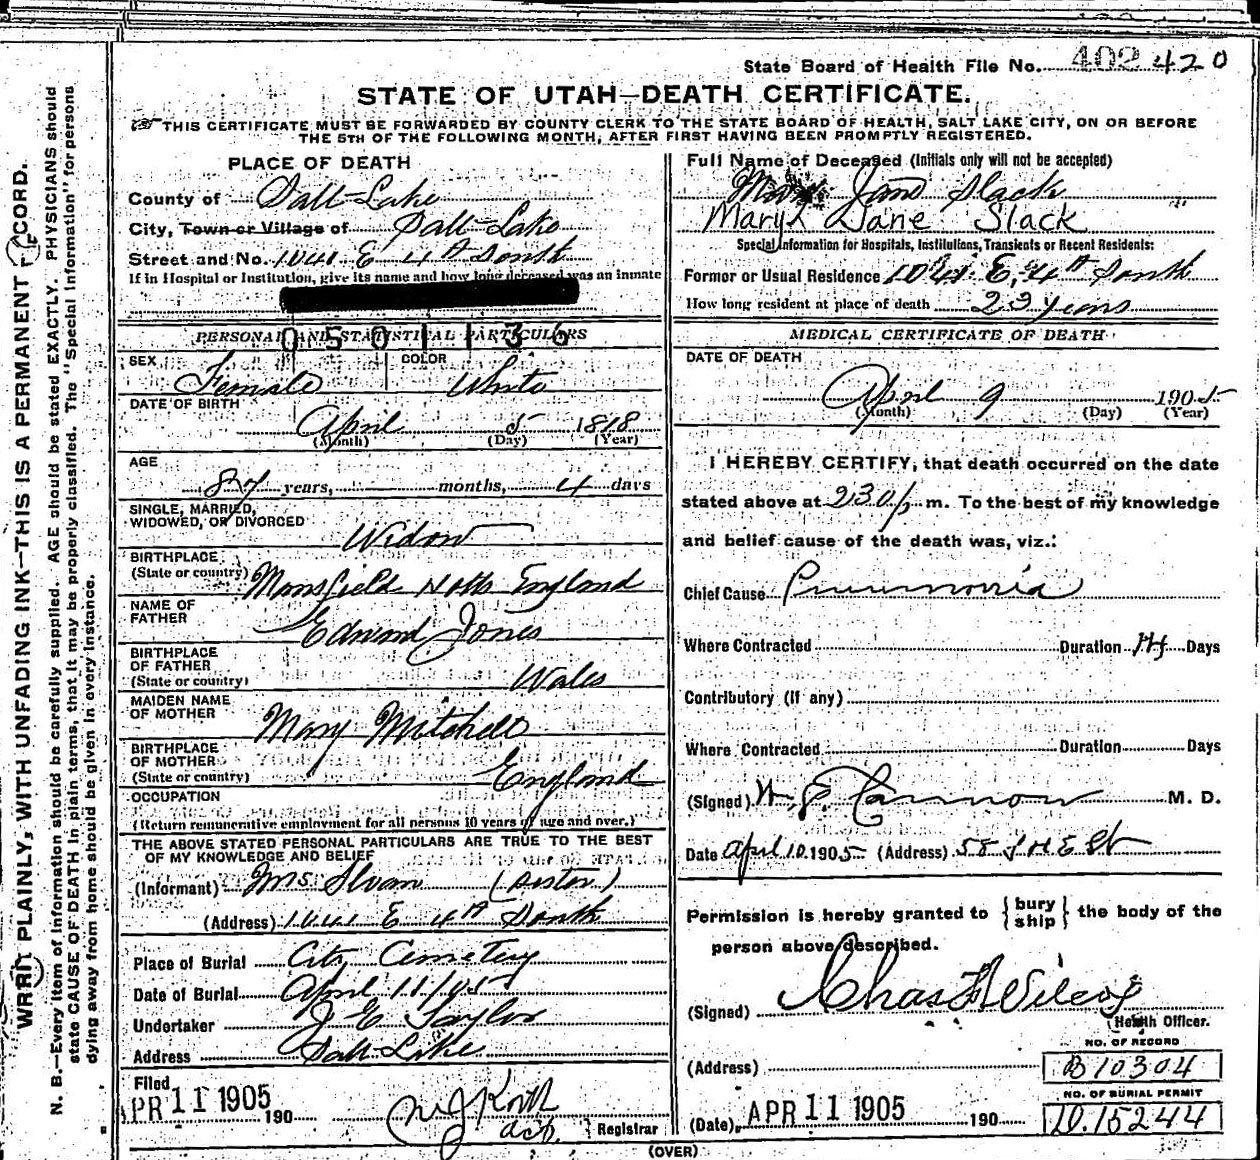 State Board of Health File No. 402 420
STATE OF UTAH—DEATH CERTIFICATE.
THIS CERTIFICATE MUST BE FORWARDED BY COUNTY CLERK TO THE STATE BOARD OF HEALTH, SALT LAKE CITY, ON OR BEFORE
THE 5TH OF THE FOLLOWING MONTH, AFTER FIRST HAVING BEEN PROMPTLY REGISTERED.
WRITE PLAINLY, WITH UNFADING INK—THIS IS A PERMANENT RECORD.
N. B.—Every item of information should be carefully supplied. AGE should be stated EXACTLY. PHYSICIANS should
state CAUSE OF DEATH in plain terms, that it may be properly classified. The "Special Information" for persons
dying away from home should be given in every instance.
PLACE OF DEATH
County of Salt Lake
City, Town or Village of Salt Lake
Street and No. 1041 E 4th South
If in Hospital or Institution, give its name and how long deceased was an inmate
PERSONAL AND STATISTICAL PARTICULARS
0501136
SEX Female COLOR White
DATE OF BIRTH
April 5 1818
(Month) (Day) (Year)
AGE
87 years, months, 4 days
SINGLE, MARRIED,
WIDOWED, OR DIVORCED Widow
BIRTHPLACE
(State or country) Mansfield Notts England
NAME OF
FATHER Edward Jones
BIRTHPLACE
OF FATHER
(State or country) Wales
MAIDEN NAME
OF MOTHER Mary Mitchell
BIRTHPLACE
OF MOTHER
(State or country) England
OCCUPATION
(Return remunerative employment for all persons 10 years of age and over.)
THE ABOVE STATED PERSONAL PARTICULARS ARE TRUE TO THE BEST
OF MY KNOWLEDGE AND BELIEF
(Informant) Mrs Sloan (Sister)
(Address) 1041 E 4th South
Place of Burial City Cemetery
Date of Burial April 11/05
Undertaker J E Taylor
Address Salt Lake
Filed
APR 11 1905 190
Registrar
Full Name of Deceased (Initials only will not be accepted)
Mary Jane Slack
Mary Jane Slack
Special Information for Hospitals, Institutions, Transients or Recent Residents:
Former or Usual Residence 1041 E. 4th South
How long resident at place of death 23 years
MEDICAL CERTIFICATE OF DEATH
DATE OF DEATH
April 9 1905
(Month) (Day) (Year)
I HEREBY CERTIFY, that death occurred on the date
stated above at 230 p m. To the best of my knowledge
and belief cause of the death was, viz.:
Chief Cause Pneumonia
Where Contracted Duration Days
Contributory (if any)
Where Contracted Duration Days
(Signed) Cannon M. D.
Date April 10 1905 (Address)
Permission is hereby granted to {bury
ship} the body of the
person above described.
(Signed) Chas F Wilcox
Health Officer.
(Address)
NO. OF RECORD
B10304
NO. OF BURIAL PERMIT
D.15244
(Date) APR 11 1905 190
(OVER)